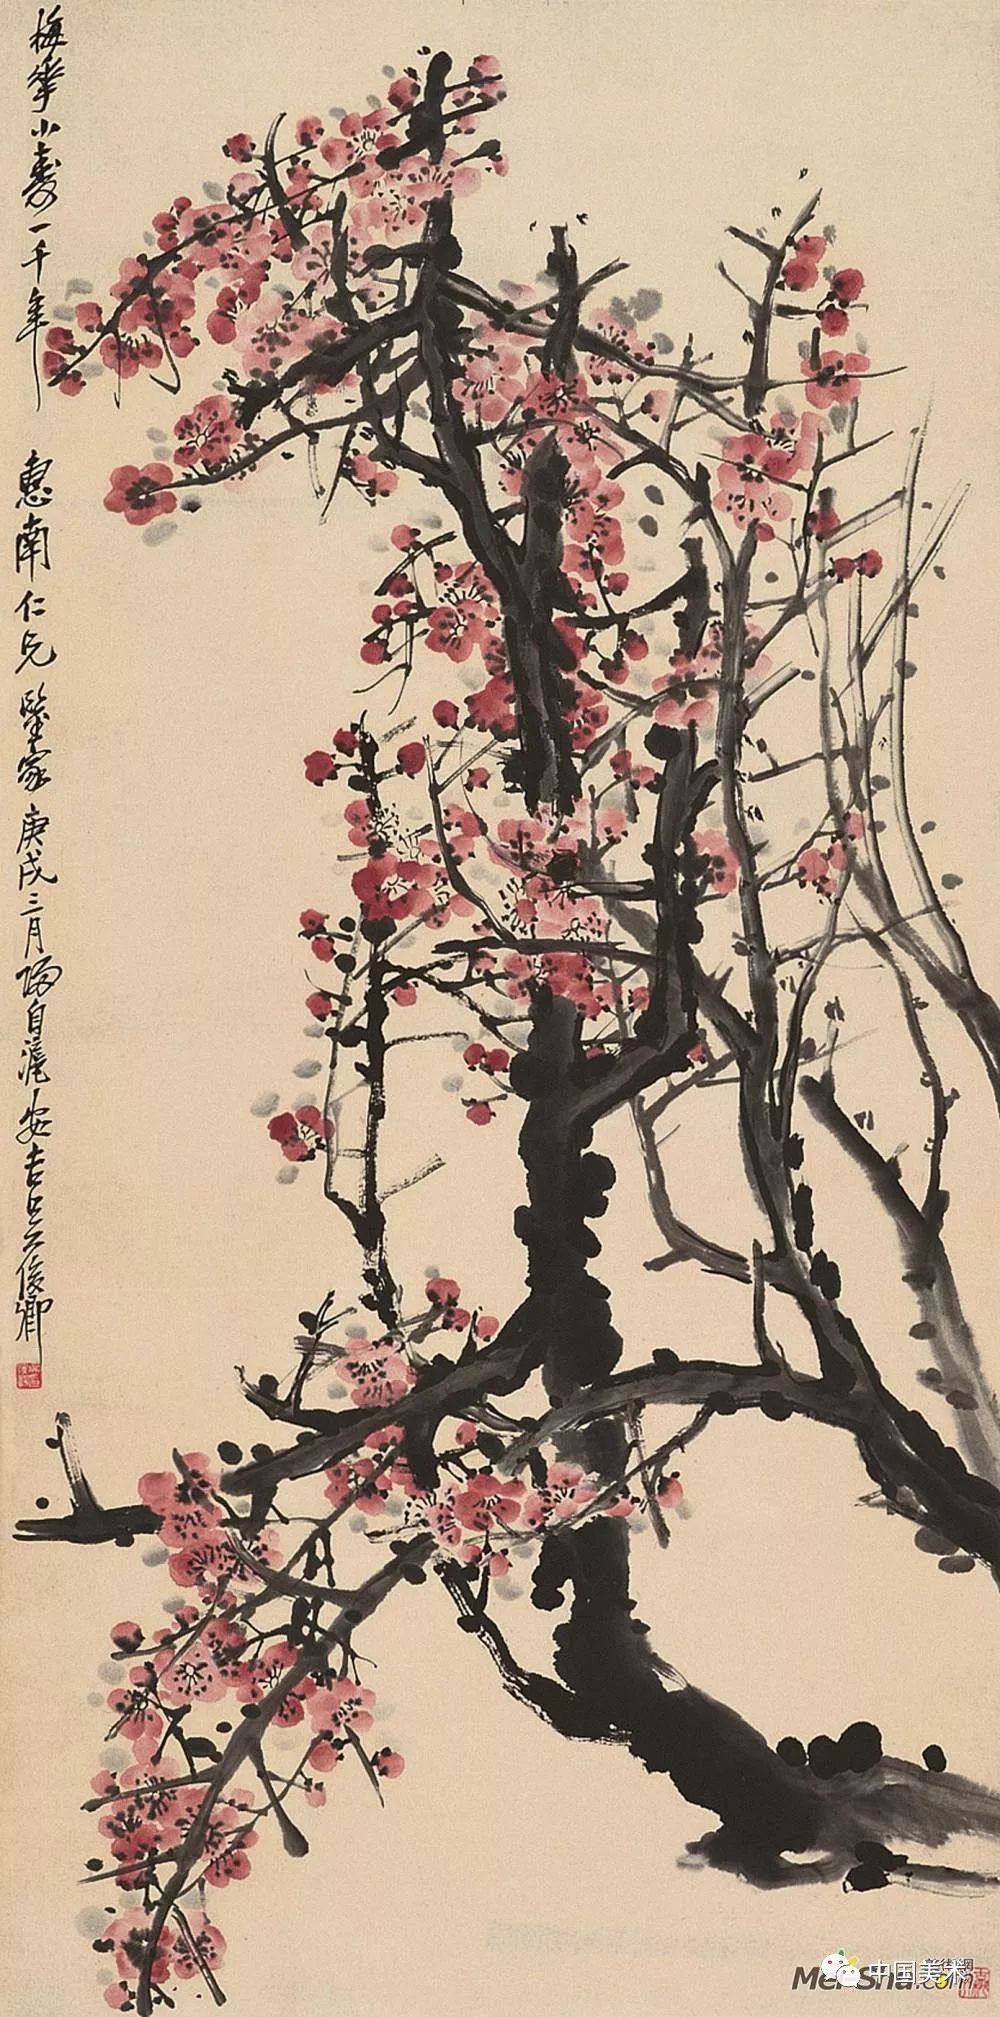 梅華小壽一千年
惠南仁兄鑒家庚戌三月歸自滬安吉吳俊卿
Mei-Shu.com
中国美术